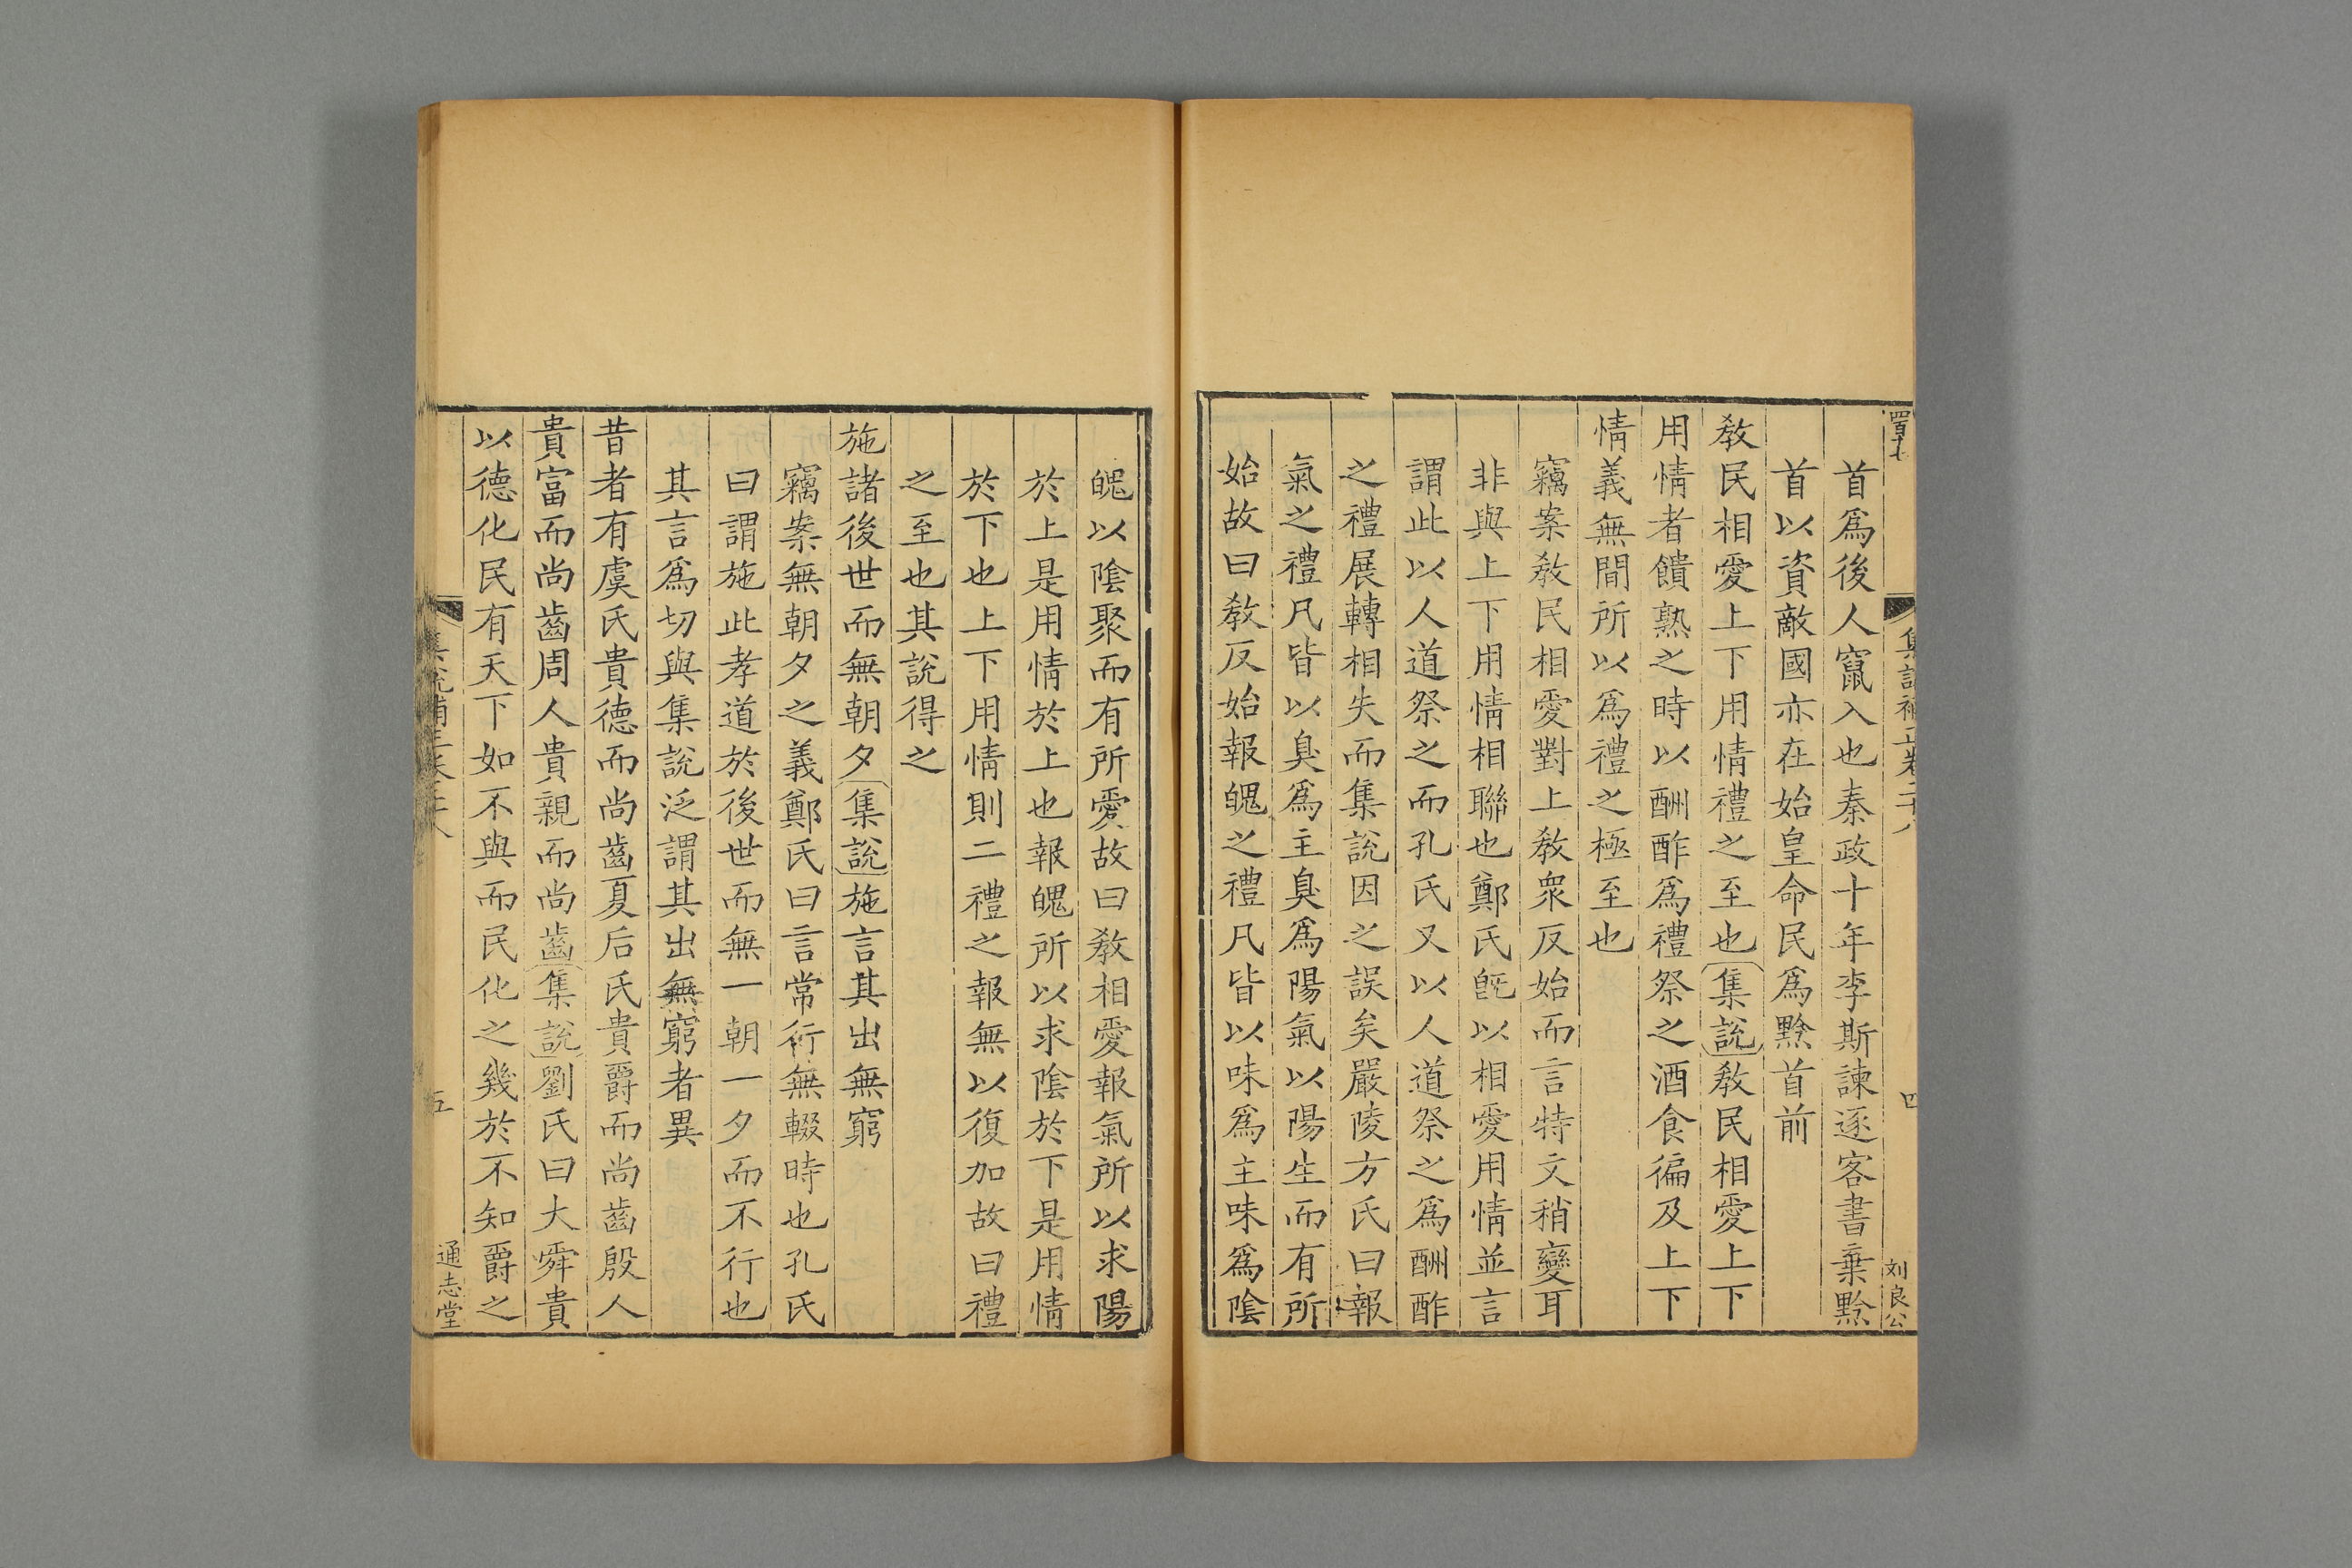 首爲後人竄入也秦政十年李斯諫逐客書棄黔
首以資敵國亦在始皇命民爲黔首前
敎民相愛上下用情禮之至也集說敎民相愛上下
用情者饋熟之時以酬酢爲禮祭之酒食徧及上下
情義無間所以爲禮之極至也
竊案敎民相愛對上敎衆反始而言特文稍變耳
非與上下用情相聯也鄭氏旣以相愛用情並言
謂此以人道祭之而孔氏又以人道祭之爲酬酢
之禮展轉相失而集說因之誤矣嚴陵方氏曰報
氣之禮凡皆以臭爲主臭爲陽氣以陽生而有所
始故曰敎反始報魄之禮凡皆以味爲主味爲陰
集說補正卷二十八
四
刘良公
魄以陰聚而有所愛故曰敎相愛報氣所以求陽
於上是用情於上也報魄所以求陰於下是用情
於下也上下用情則二禮之報無以復加故曰禮
之至也其說得之
施諸後世而無朝夕集說施言其出無窮
竊案無朝夕之義鄭氏曰言常行無輟時也孔氏
曰謂施此孝道於後世而無一朝一夕而不行也
其言爲切與集說泛謂其出無窮者異
昔者有虞氏貴德而尚齒夏后氏貴爵而尚齒殷人
貴富而尚齒周人貴親而尚齒集說劉氏曰大舜貴
以德化民有天下如不與而民化之幾於不知爵之
五
通志堂